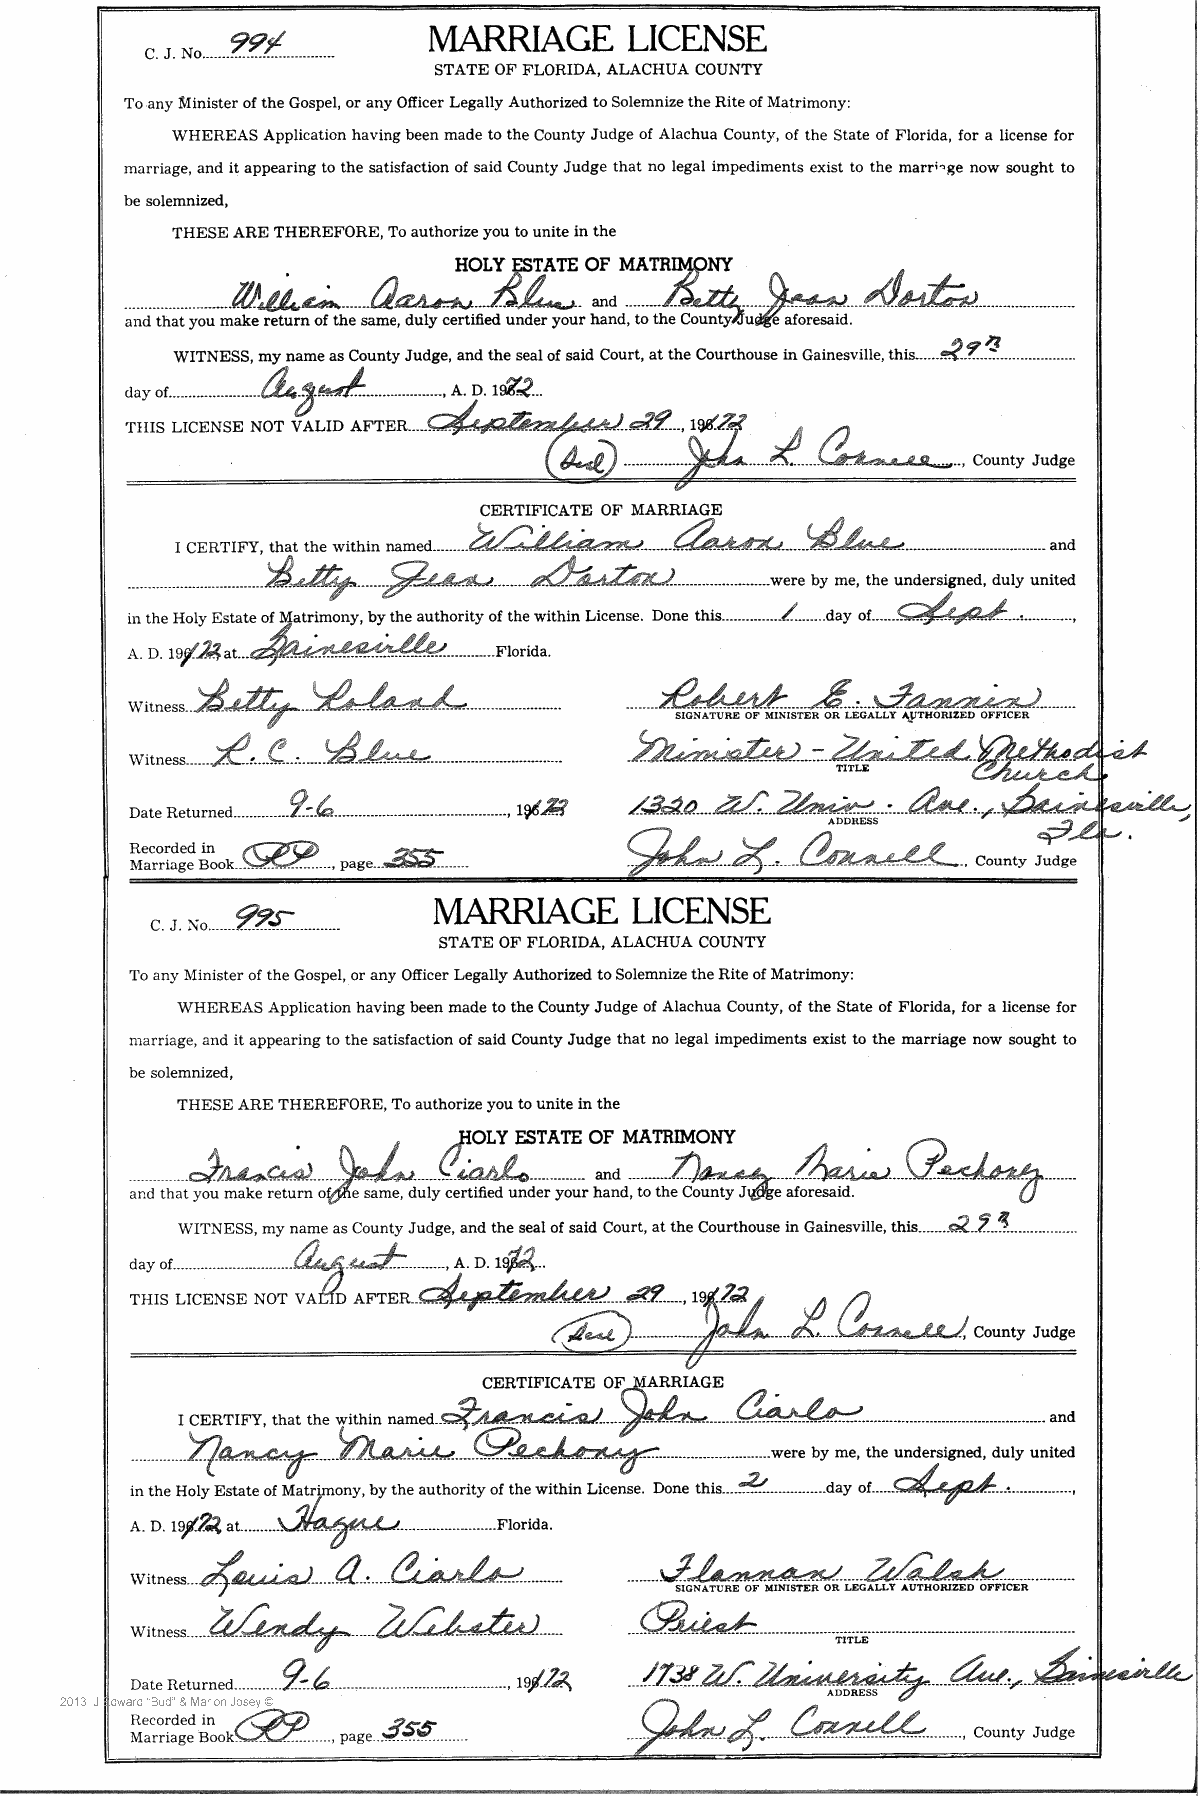 C. J. No. 994
MARRIAGE LICENSE
STATE OF FLORIDA, ALACHUA COUNTY
To any Minister of the Gospel, or any Officer Legally Authorized to Solemnize the Rite of Matrimony:
WHEREAS Application having been made to the County Judge of Alachua County, of the State of Florida, for a license for
marriage, and it appearing to the satisfaction of said County Judge that no legal impediments exist to the marriage now sought to
be solemnized,
THESE ARE THEREFORE, To authorize you to unite in the
HOLY ESTATE OF MATRIMONY
William Aaron Blue and Betty Jean Dorton
and that you make return of the same, duly certified under your hand, to the County Judge aforesaid.
WITNESS, my name as County Judge, and the seal of said Court, at the Courthouse in Gainesville, this 29th
day of August, A. D. 1972
THIS LICENSE NOT VALID AFTER September 29, 1972
(Seal) John L. Connell, County Judge
CERTIFICATE OF MARRIAGE
I CERTIFY, that the within named William Aaron Blue and
Betty Jean Dorton were by me, the undersigned, duly united
in the Holy Estate of Matrimony, by the authority of the within License. Done this 1 day of Sept.,
A. D. 1972, at Gainesville Florida.
Witness Betty Roland Robert E. Fannin
SIGNATURE OF MINISTER OR LEGALLY AUTHORIZED OFFICER
Witness R. C. Blue Minister - United Methodist Church
TITLE
Date Returned 9-6, 1972 1320 W. Univ. Ave., Gainesville, Fla.
ADDRESS
Recorded in
Marriage Book PP, page 355 John L. Connell, County Judge
C. J. No. 995
MARRIAGE LICENSE
STATE OF FLORIDA, ALACHUA COUNTY
To any Minister of the Gospel, or any Officer Legally Authorized to Solemnize the Rite of Matrimony:
WHEREAS Application having been made to the County Judge of Alachua County, of the State of Florida, for a license for
marriage, and it appearing to the satisfaction of said County Judge that no legal impediments exist to the marriage now sought to
be solemnized,
THESE ARE THEREFORE, To authorize you to unite in the
HOLY ESTATE OF MATRIMONY
Francis John Ciarlo and Nancy Marie Pechony
and that you make return of the same, duly certified under your hand, to the County Judge aforesaid.
WITNESS, my name as County Judge, and the seal of said Court, at the Courthouse in Gainesville, this 29th
day of August, A. D. 1972
THIS LICENSE NOT VALID AFTER September 29, 1972
(Seal) John L. Connell, County Judge
CERTIFICATE OF MARRIAGE
I CERTIFY, that the within named Francis John Ciarlo and
Nancy Marie Pechony were by me, the undersigned, duly united
in the Holy Estate of Matrimony, by the authority of the within License. Done this 2 day of Sept.,
A. D. 1972, at Hague Florida.
Witness Louis A. Ciarlo Flannan Walsh
SIGNATURE OF MINISTER OR LEGALLY AUTHORIZED OFFICER
Witness Wendy Webster Priest
TITLE
Date Returned 9-6, 1972 1738 W. University Ave., Gainesville
ADDRESS
2013 J Edward "Bud" & Marion Josey ©
Recorded in
Marriage Book PP, page 355 John L. Connell, County Judge